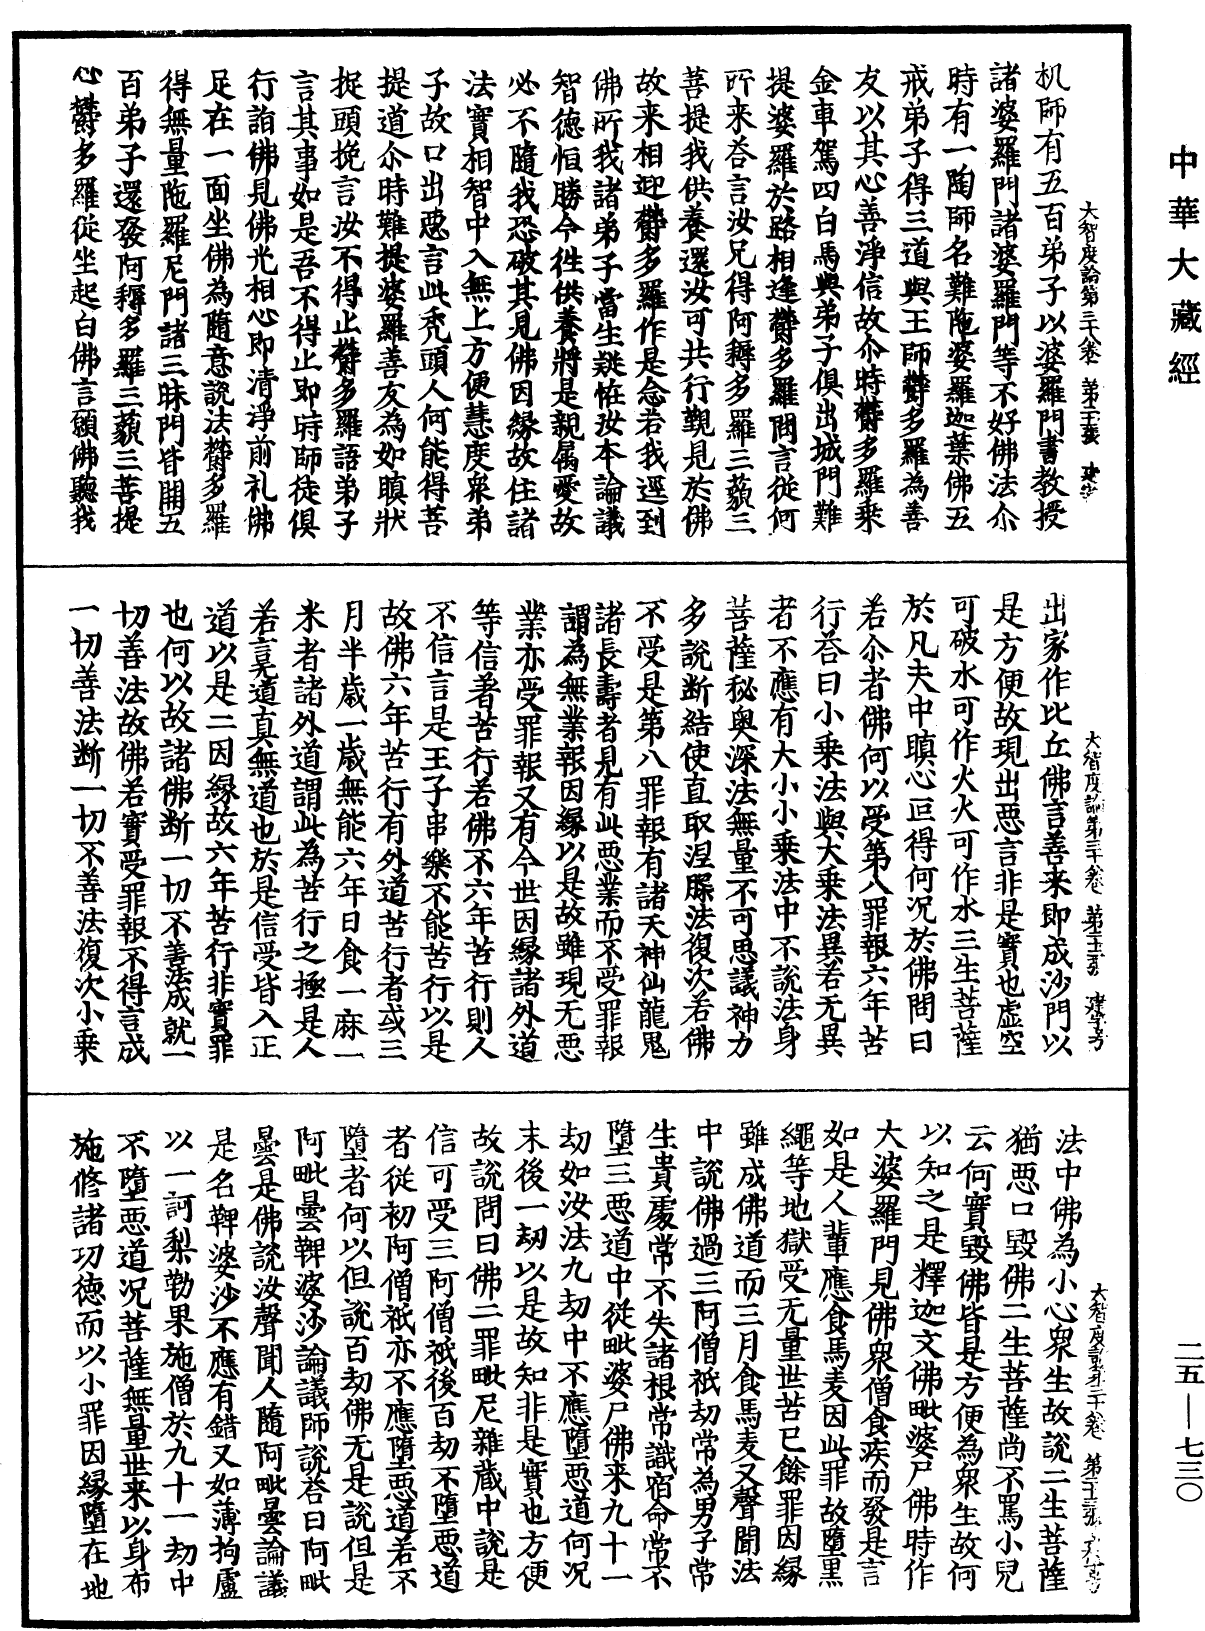 中華大藏經
机師有五百弟子以婆羅門書教授
諸婆羅門諸婆羅門等不好佛法尒
時有一陶師名難陁婆羅迦葉佛五
戒弟子得三道與王師欝多羅為善
友以其心善淨信故尒時欝多羅乗
金車駕四白馬與弟子俱出城門難
提婆羅於路相逢欝多羅問言從何
所来荅言汝兄得阿耨多羅三藐三
菩提我供養還汝可共行覲見於佛
故来相迎欝多羅作是念若我逕到
佛所我諸弟子當生疑恠汝本論議
智德恒勝今徃供養將是親属愛故
必不隨我恐破其見佛因緣故住諸
法實相智中入無上方便慧度衆弟
子故口出惡言此秃頭人何能得菩
提道尒時難提婆羅善友為如瞋狀
捉頭挽言汝不得止欝多羅語弟子
言其事如是吾不得止即時師徒俱
行詣佛見佛光相心即清淨前礼佛
足在一面坐佛為隨意說法欝多羅
得無量陁羅尼門諸三昧門皆開五
百弟子還發阿耨多羅三藐三菩提
心欝多羅從坐起白佛言願佛聽我
大智度論第三十八卷 第二十張 建字
出家作比丘佛言善来即成沙門以
是方便故現出惡言非是實也虛空
可破水可作火火可作水三生菩薩
於凡夫中瞋心叵得何况於佛問曰
若尒者佛何以受第八罪報六年苦
行荅曰小乗法與大乗法異若无異
者不應有大小小乗法中不說法身
菩薩秘奥深法無量不可思議神力
多說断結使直取涅槃法復次若佛
不受是第八罪報有諸天神仙龍鬼
諸長壽者見有此惡業而不受罪報
謂為無業報因緣以是故雖現无惡
業亦受罪報又有今世因緣諸外道
等信著苦行若佛不六年苦行則人
不信言是王子串樂不能苦行以是
故佛六年苦行有外道苦行者或三
月半歳一歳無能六年日食一麻一
米者諸外道謂此為苦行之極是人
若言无道真無道也於是信受皆入正
道以是二因緣故六年苦行非實罪
也何以故諸佛断一切不善法成就一
切善法故佛若實受罪報不得言成
一切善法断一切不善法復次小乗
大智度論第三十八卷
法中佛為小心衆生故說二生菩薩
猶惡口毀佛二生菩薩尚不罵小兒
云何實毀佛皆是方便為衆生故何
以知之是釋迦文佛毗婆尸佛時作
大婆羅門見佛衆僧食疾而發是言
如是人輩應食馬麦因此罪故墮黑
繩等地獄受无量世苦已餘罪因緣
雖成佛道而三月食馬麦又聲聞法
中說佛過三阿僧祇劫常為男子常
生貴處常不失諸根常識宿命常不
墮三惡道中從毗婆尸佛来九十一
劫如汝法九劫中不應墮惡道何况
末後一劫以是故知非是實也方便
故說問曰佛二罪毗尼雜藏中說是
信可受三阿僧祇後百劫不墮惡道
者從初阿僧祇亦不應墮惡道若不
墮者何以但說百劫佛无是說但是
阿毗曇鞞婆沙論議師說荅曰阿毗
曇是佛說汝聲聞人隨阿毗曇論議
是名鞞婆沙不應有錯又如薄拘盧
以一訶梨勒果施僧於九十一劫中
不墮惡道况菩薩無量世来以身布
施修諸功德而以小罪因緣墮在地
大智度論第三十八卷
二五—七三〇